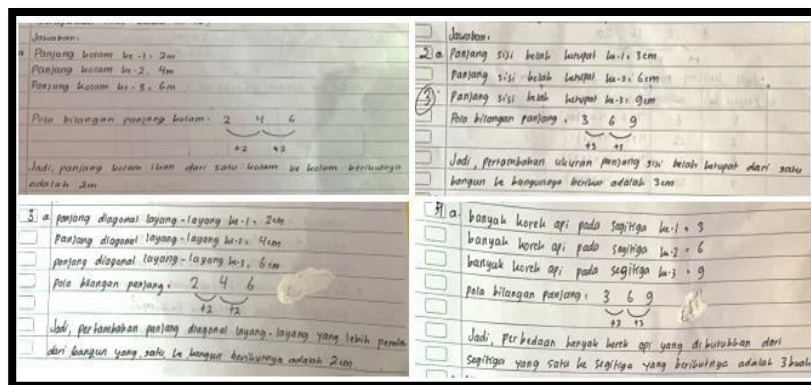 Jawaban:
a Panjang kolam ke-1 = 2m
Panjang kolam ke-2 = 4m
Panjang kolam ke-3 = 6m
Pola bilangan panjang kolam = 2 4 6
+2 +2
Jadi, panjang kolam ikan dari satu kolam ke kolam berikutnya
adalah 2m
Jawaban:
2 a Panjang sisi belah ketupat ke-1 = 3cm
Panjang sisi belah ketupat ke-2 = 6cm
3 Panjang sisi belah ketupat ke-3 = 9cm
Pola bilangan panjang = 3 6 9
+3 +3
Jadi, pertambahan ukuran panjang sisi belah ketupat dari satu
bangun ke bangunnya berikut adalah 3cm
3 a panjang diagonal layang-layang ke-1 = 2cm
panjang diagonal layang-layang ke-2 = 4cm
panjang diagonal layang-layang ke-3 = 6cm
pola bilangan panjang = 2 4 6
+2 +2
Jadi, pertambahan panjang diagonal layang-layang yang lebih pendek
dari bangun yang satu ke bangun berikutnya adalah 2cm
a. banyak korek api pada segitiga ke-1 = 3
banyak korek api pada segitiga ke-2 = 6
banyak korek api pada segitiga ke-3 = 9
pola bilangan panjang = 3 6 9
+3 +3
Jadi, perbedaan banyak korek api yang dibutuhkan dari
segitiga yang satu ke segitiga yang berikutnya adalah 3 buah